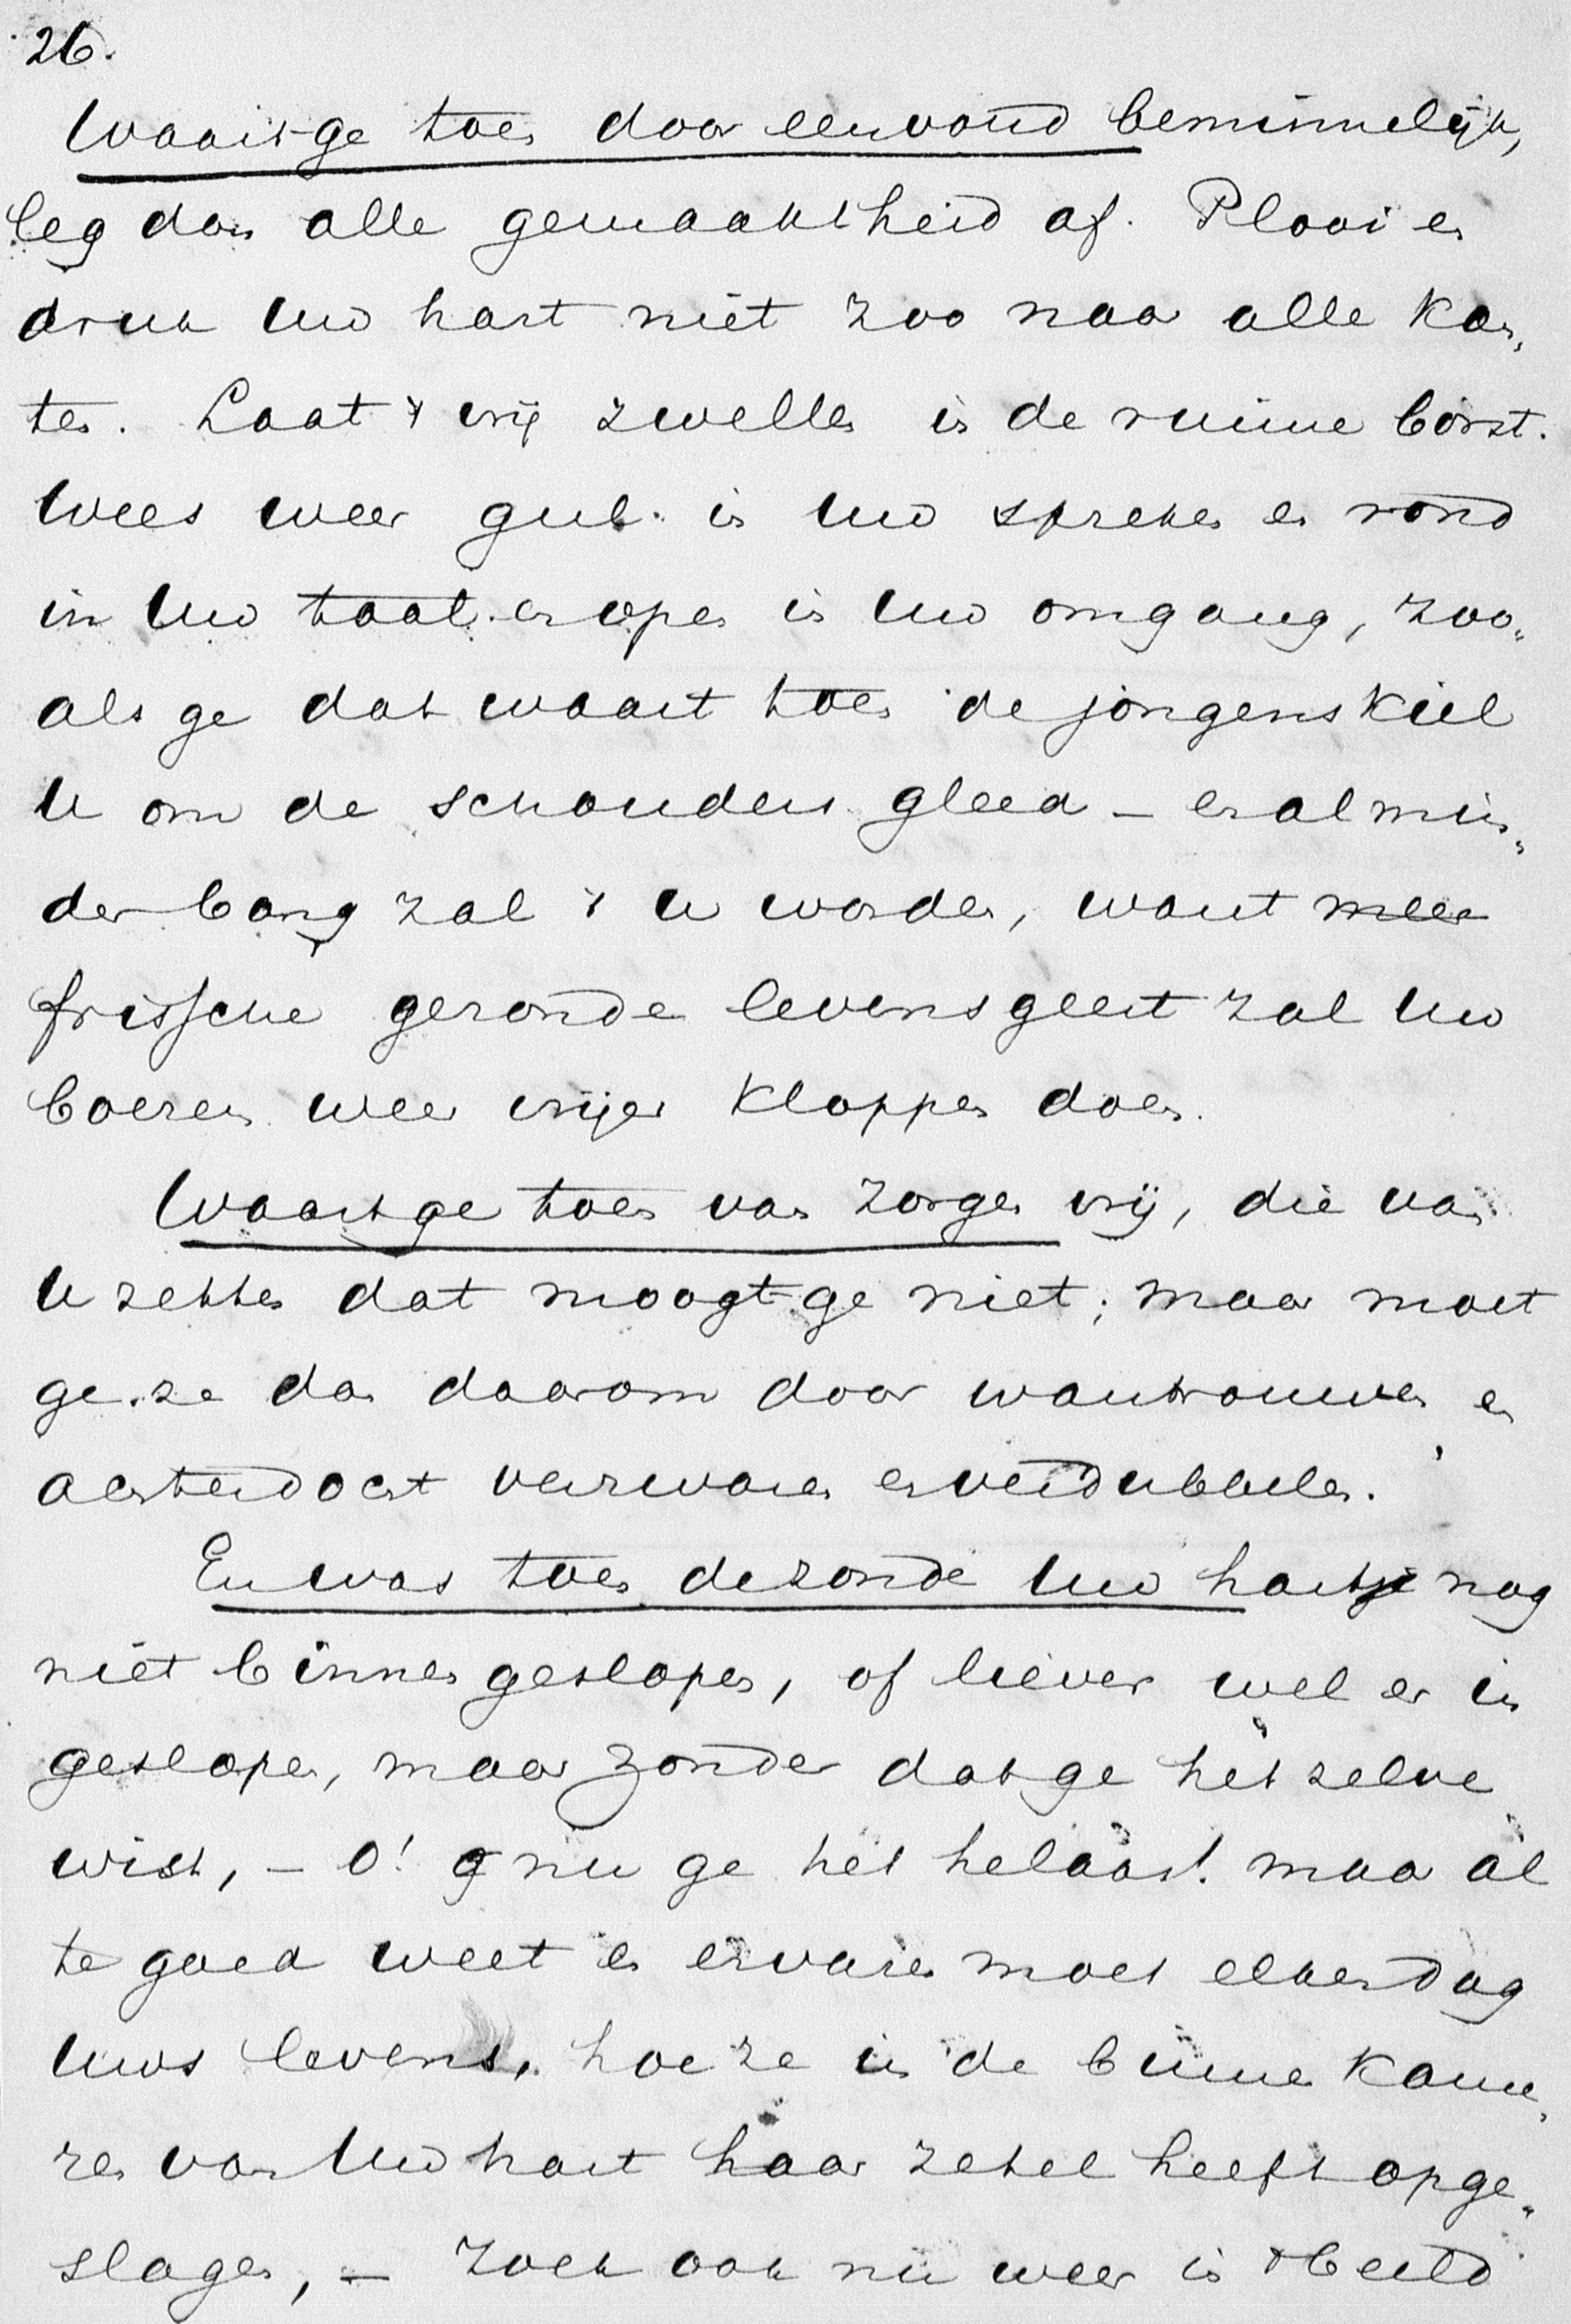 26.
Waart-ge toen door eenvoud beminnelijk,
leg dan alle gemaaktheid af. Plooi en
druk Uw hart niet zoo naar alle kan„
ten. Laat 't vrij zwellen in de ruime borst.
Wees weer gul in Uw spreken en rond
in Uw taal en open in Uw omgang, zoo„
als ge dat waart toen de jongenskiel
U om de schouders gleed – en al min„
der bang zal 't U worden, want meer
frissche gezonde levensgeest zal Uw
boezem weer vrijer kloppen doen.
Waart ge toen van zorgen vrij, die van
U zetten dat moogt-ge niet; maar moet
ge ze dan daarom door wantrouwen en
achterdocht verzwaren en verdubbelen.
En was toen de zonde Uw hartje nog
niet binnengeslopen, of liever wel er in
geslopen, maar zonder dat ge het zelve
wist, – O! nu ge het helaas! maar al
te goed weet en ervaren moet elken dag
Uws levens, hoe ze in de binnenkame„
ren van Uw hart haar zetel heeft opge„
slagen, – zoek ook nu weer in 't beeld